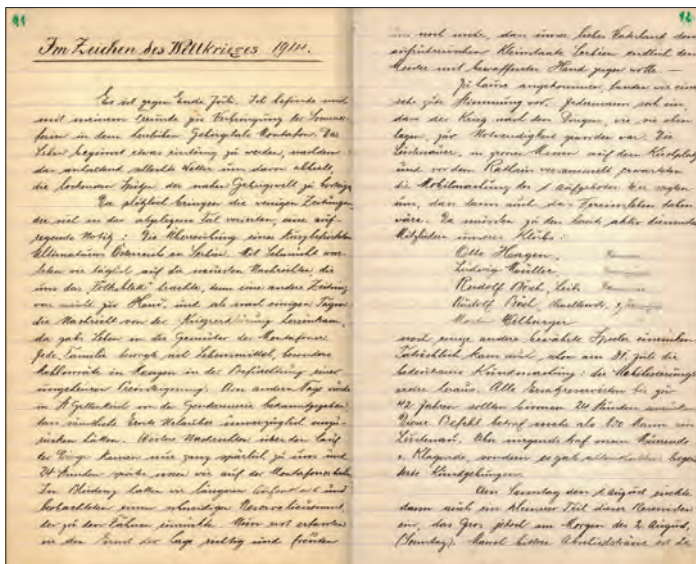 91
Im Zeichen des Weltkrieges 1914.
Es ist gegen Ende Juli. Ich befinde mich
mit meinem Freunde zur Verbringung der Sommer-
ferien in dem herrlichen Gebirgstale Montafon. Das
Leben beginnt etwas eintönig zu werden, nachdem
das anhaltend schlechte Wetter uns davon abhielt,
die lockenden Spitzen der nahen Gebirgswelt zu
Da plötzlich bringen die wenigen Zeitungen
der sich in das abgelegene Tal eine auf-
regende Notiz: Die Überreichung eines kurzbefristeten
Ultimatums Österreichs an Serbien. Mit Sehnsucht war-
teten wir täglich auf die neuesten Nachrichten, die
uns das "Volksblatt" brachte, denn eine andere Zeitung
war nicht zur Hand, und als nach einigen Tagen
die Nachricht von der Kriegserklärung hereinkam,
da gabs Leben in der Gemüter der Montafoner.
Jede Familie besorgte viel Lebensmittel, besonders
Mehlvorräte in Mengen in der Befürchtung einer
ungeheuren Preissteigerung. Am andern Tage wurde
in St. Gallenkirch von der Gendarmerie bekanntgegeben,
dass sämtliche Ernte Urlauber unverzüglich einzu-
rücken hätten. Weitere Nachrichten über den Lauf
der Dinge kamen nur ganz spärlich zu uns und
24 Stunden später waren wir auf der Montafonerbahn.
In Bludenz hatten wir längeren Aufenthalt und
beobachteten einen schneidigen Reservelieutnant,
der zu den Fahnen einrückte. Nun erst erfassten
wir den Ernst der Lage richtig und freuten
92
uns noch mehr, dass unser liebes Vaterland dem
Kleinstaate Serbien endlich den
mit bewaffneter Hand zeigen wollte. —
Zu Hause angekommen, fanden wir eine
sehr gute Stimmung vor. Jedermann sah ein,
dass der Krieg nach den Dingen, wie sie eben
lagen, zur Notwendigkeit geworden war. Die
Lustenauer, in grosser Massen auf dem Kirchplatz
und vor dem Rathaus versammelt, erwarteten
die Mobilmachung des 1. Aufgebotes. Wir sagten
uns, dass dann auch das Vereinsleben dahin
wäre. Da müssten zu den bereits aktiv dienenden
Mitgliedern unseres Klubs:
Otto Hagen,
Ludwig Müller,
Rudolf Bösch,
Rudolf Bösch,
Hilburger
noch einige andere bewährte Spieler einrücken.
Tatsächlich kam auch schon am 31. Juli die
bedeutsame Kundmachung: die Mobilisierungs-
order heraus. Alle Ersatzreservisten bis zu
42 Jahren sollten binnen 24 Stunden
Dieser Befehl betraf mehr als 100 Mann in
Lustenau. Aber nirgends traf man Weinende
u. Klagende, sondern es gab allerhand begei-
sterte Kundgebungen.
Am Samstag den 1. August rückte
dann auch ein kleiner Teil dieser Reservisten
ein, das Gros jedoch am Morgen des 2. August,
(Sonntag). Manch bittere Abschiedsträne